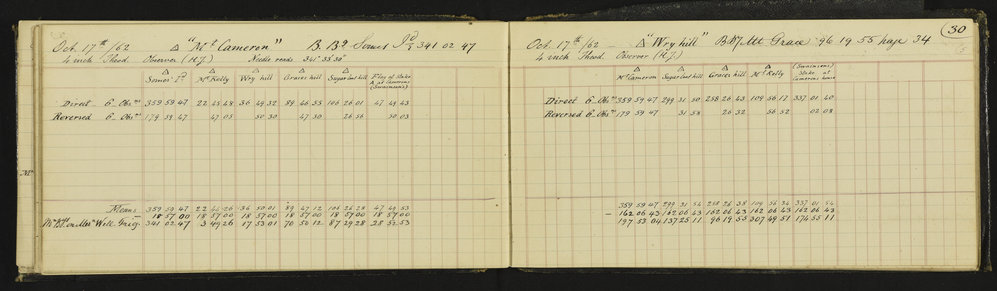 Oct. 17th /62 △ "Mt Cameron" B. Bg Somes Id 341 02 47
4 inch Theod Observer (H.J.) Needle reads 341° 55' 30"
△ △ △ △ △
Somes Id Mt Kelly Wry hill Gracer hill Sugar loaf hill Flag at Stake
at Camerons
(Swainsons)
Direct 6 Obsns 359 59 47 22 45 48 36 49 32 89 46 55 106 26 01 47 49 43
Reversed 6 Obsns 179 59 47 47 05 50 30 47 30 26 56 50 03
Means 359 59 47 22 46 26 36 50 01 89 47 12 106 26 28 47 49 53
— 18 57 00 18 57 00 18 57 00 18 57 00 18 57 00 18 57 00
Well. Grig. 341 02 47 3 49 26 17 53 01 70 50 12 87 29 28 28 52 53
30
Oct. 17th /62 — △ "Wry hill" Mt Grace 96 19 55 page 34
4 inch Theod. Observer (H.J.)
△ △ △ △ (Swainsons)
Mt Cameron Sugar loaf hill Gracer hill Mt Kelly Stake at
Camerons house
Direct 6 Obsns 359 59 47 299 31 50 258 26 43 109 56 17 337 01 40
Reversed 6 Obsns 179 59 47 31 58 26 32 56 52 02 08
359 59 47 299 31 54 258 26 38 109 56 34 337 01 54
— 162 06 43 162 06 43 162 06 43 162 06 43 162 06 43
197 53 04 137 25 11 96 19 55 307 49 51 174 55 11